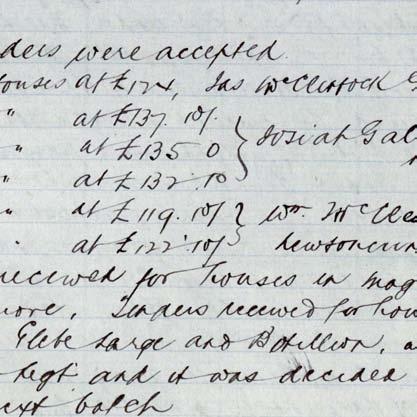 ders were accepted.
ouses at £124, Jas McClintock G
" at £137. 10/.
" at £135 0 } Josiah Gal
" at £132. 10
" at £119. 10/ } Wm. McClea
" at £122. 10/ Newtoncunn
received for houses in mag
more. Tenders received for hou
Glebe Large and
and it was decided
ext batch